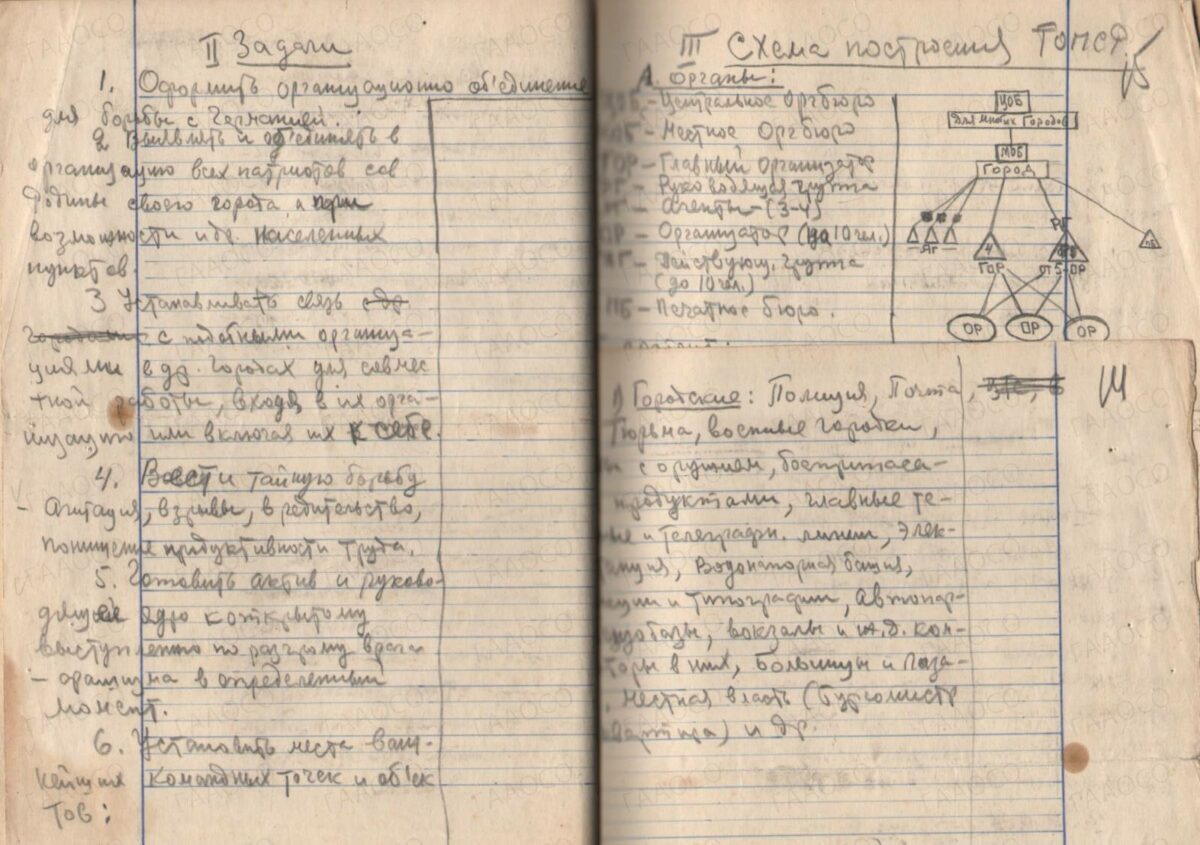 II Задачи
1. Оформить организационно об'единение
для борьбы с Германией.
2 Выявлять и об'единять в
организацию всех патриотов сов
Родины своего города, а при
возможности и др. населенных
пунктов.
3 Устанавливать связь с др
городами с подобными организа-
циями в др. городах для совмес
тной работы, входя в их орга-
низацию или включая их к себе.
4. Вести тайную борьбу
- Агитация, взрывы, вредительство,
понижение продуктивности труда.
5. Готовить актив и руково-
дящее ядро к открытому
выступлению по разгрому врага
- фашизма в определенный
момент.
6. Установить места важ-
нейших командных точек и об'ек
тов:
III Схема построения ТОПСР.
А. Органы:
ЦОБ - Центральное Оргбюро
МОБ - Местное Оргбюро
ГОР - Главный Организатор
РГ - Руководящая группа
АГ - Агенты - (3-4)
ОР - Организатор (до 10 чел.)
ДГ - Действующ. группа
(до 10 чел.)
ПБ - Печатное бюро.
ЦОБ
Для многих Городов
МОБ
Город
РГ
ПБ
АГ
ГОР
от 5-ОР
ОР ОР ОР
1) Городские: Полиция, Почта,
тюрьма, военные городки,
с оружием, боеприпаса-
продуктами, главные те-
и телеграфн. линии, Элек-
Водонапорная башня,
и типографии, Автопар-
вокзалы и ж.д. кон-
торы в них, больницы и
местная власть (бургомистр
и др.